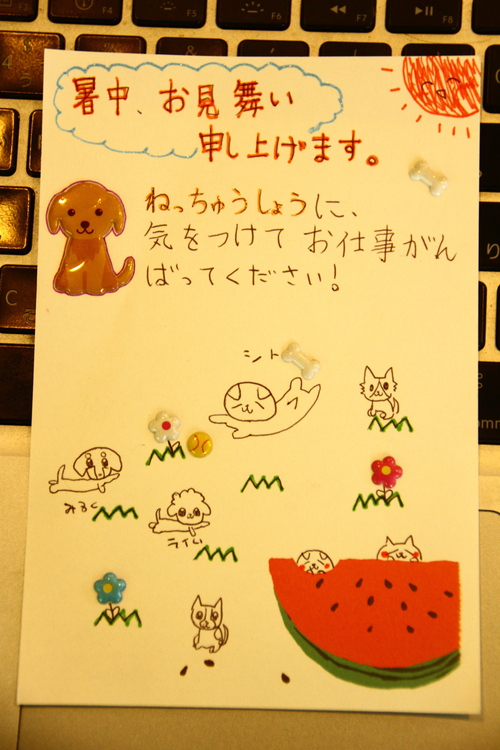 暑中、お見舞い
申し上げます。
ねっちゅうしょうに、
気をつけて お仕事がん
ばってください!
シト
みるく
ライム
F7
F8
F9
C